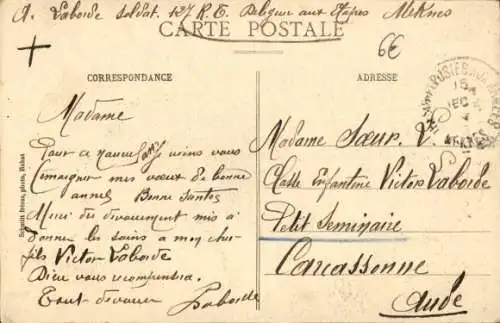 A. Laborde Soldat. 127 R. T. Délégué aux Étapes Meknes
CARTE POSTALE
6€
CORRESPONDANCE
ADRESSE
Madame
Pour à nouvel an viens vous
témoigner mes vœux de bonne
année Bonne Santée
Merci du dévouement mis à
donner les soins a mon cher
fils Victor Laborde
Dieu vous récompensera.
Tout dévoué Laborde
Madame Sœur. V.
Classe Enfantine Victor Laborde
Petit Seminaire
Carcassonne
Aude
15
DEC
MEKNES
Schmitt frères, photo, Rabat